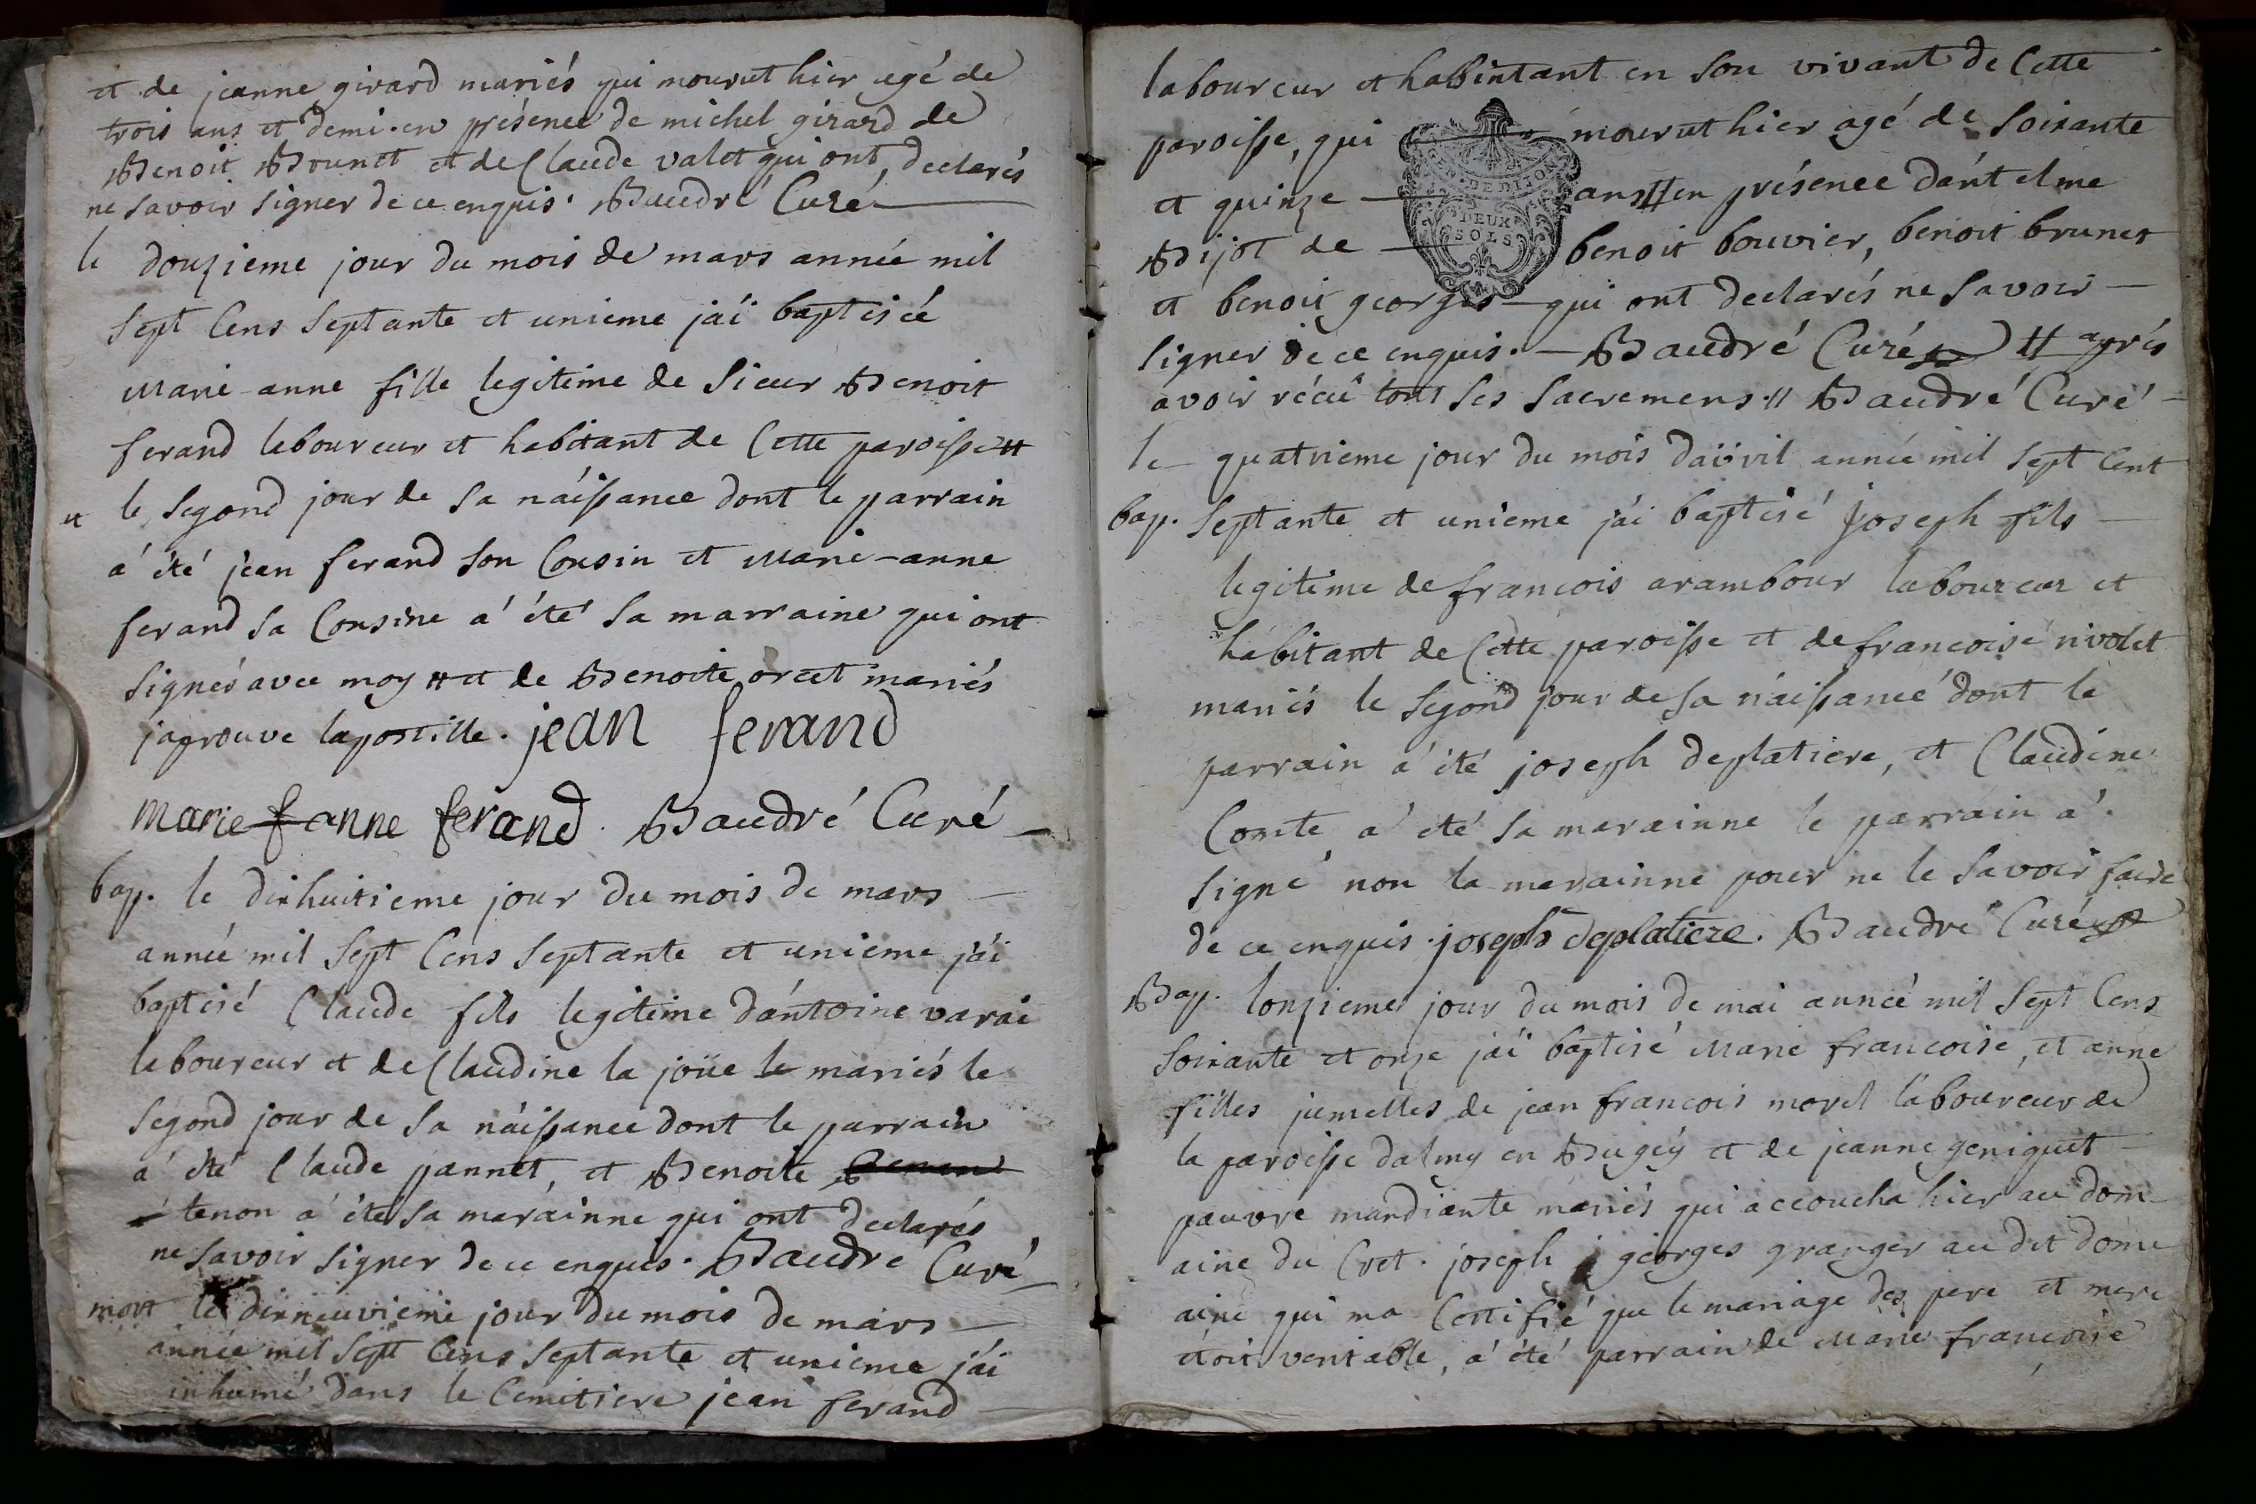 et de jeanne girard mariés qui mourut hier agé de
trois ans et demi. en présence de michel girard de
Benoit Brunet et de Claude valet qui ont declarés
ne savoir signer de ce enquis. Baudré Curé
le douzieme jour du mois de mars année mil
sept Cens septante et unieme j'ai baptisée
Marie-anne fille legitime de sieur Benoit
ferand laboureur et habitant de Cette paroisse #
et le segond jour de sa náissance dont le parrain
á été jean ferand son Cousin et Marie-anne
ferand sa Cousine á été sa marraine qui ont
signés avec moy # et de Benoite orcet mariés
japrouve lapostille. jean ferand
marie f anne ferand. Baudré Curé
bap. le dixhuitieme jour du mois de mars
année mil sept Cens septante et unieme j'ai
baptisé Claude fils legitime dántoine varai
laboureur et de Claudine la joüe le mariés le
segond jour de sa náissance dont le parrain
á été Claude pannet, et Benoite
tenon á été sa maráinne qui ont declarés
ne savoir signer de ce enquis. Baudré Curé
mort le dixneuvieme jour du mois de mars
année mil sept Cens septante et unieme j'ai
inhumé dans le Cemitiere jean ferand
laboureur et habintant en son vivant de Cette
paroisse, qui mourut hier agé de soixante
et quinze ans # en présence dánt elme
Bijot de benoit bouvier, benoit brunet
et benoit georges qui ont declarés ne savoir
signer de ce enquis. Baudré Curé # aprés
avoir réçû tous ses sacremens. // Baudré Curé
DE DIJON
DEUX
SOLS
le quatrieme jour du mois davril année mil sept Cent
bap. septante et unieme j'ai baptisé joseph fils
legitime de francois arambour laboureur et
habitant de Cette paroisse et de francoise rivolet
mariés le segond jour de sa náissance dont le
parrain á été joseph deplatiere, et Claudine
Comte á été sa marainne le parrain á
signé non la marainne pour ne le savoir faire
de ce enquis. joseph deplatiere. Baudré Curé
Bap. lonzieme jour du mois de mai année mil sept Cens
soixante et onze j'ai baptisé Marie francoise, et anne
filles jumelles de jean francois morel laboureur de
la paroisse dalmy en Bugey et de jeanne geniquet
pauvre mandiante mariés qui accoucha hier au dom-
aine du Cret. joseph georges granger au dit dom-
aine qui ma Certifié que le mariage des pere et mere
étoit veritable, á été parrain de Marie francoise